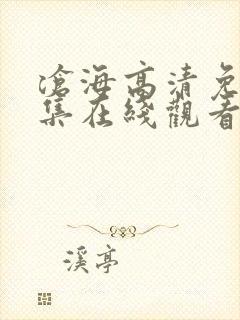 滄海高清免
集在綫觀看
溪亭